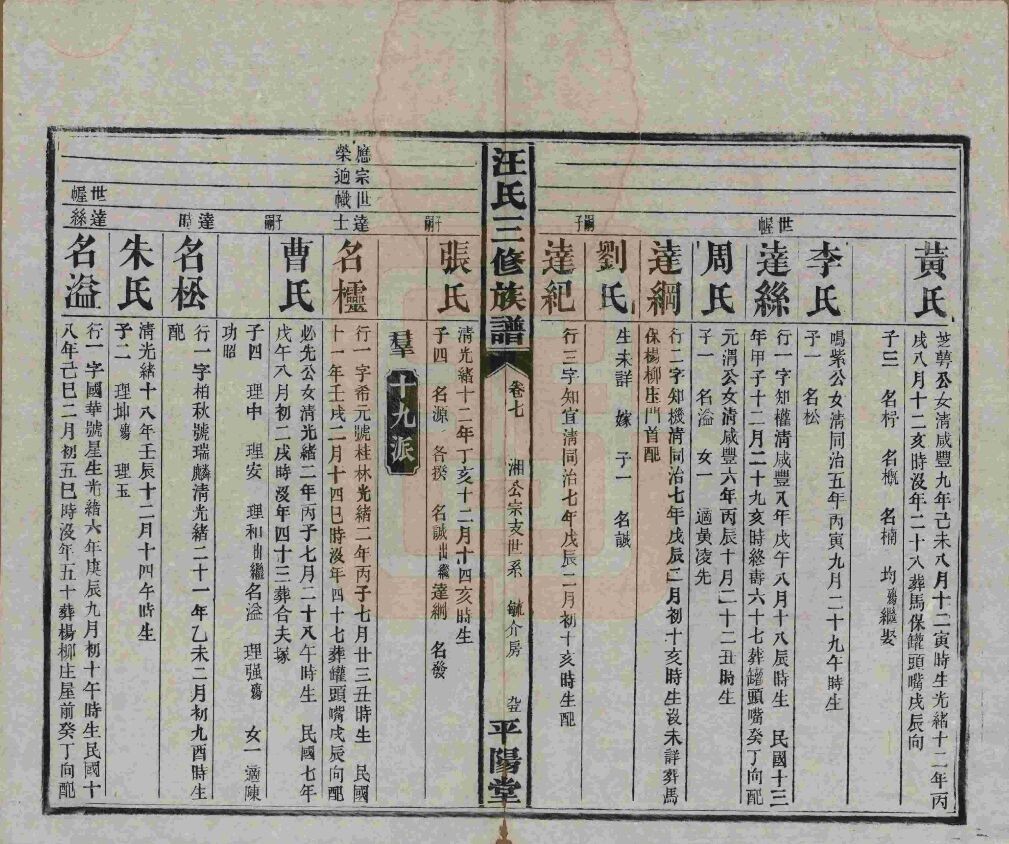 黃氏
芝蕚公女清咸豐九年己未八月十二寅時生光緒十二年丙
戌八月十二亥時沒年二十八葬馬保罐頭嘴戌辰向
子三 名 名概 名楠 均殤繼娶
李氏
鳴紫公女清同治五年丙寅九月二十九午時生
子一 名松
世幄
達絲
行一字知權清咸豐八年戊午八月十八辰時生 民國十三
年甲子十二月二十九亥時終壽六十七葬罐頭嘴癸丁向配
周氏
元渭公女清咸豐六年丙辰十月二十二丑時生
子一 名溢 女一 適黃凌先
達綱
行二字知機清同治七年戊辰二月初十亥時生沒未詳葬馬
保楊柳庄門首配
劉氏
生未詳 嫁 子一 名誠
嗣子
達紀
行三字知宜清同治七年戊辰二月初十亥時生配
汪氏三修族譜
卷七 湘公宗支世系 毓介房
平陽堂
嗣子
張氏
清光緒十二年丁亥十二月十四亥時生
子四 名源 各揆 名誠出繼達綱 名發
羣十九派
應宗世達
榮迥幟士
名櫺
行一字希元號桂林光緒二年丙子七月廿三丑時生 民國
十一年壬戌二月十四巳時沒年四十七葬罐頭嘴戌辰向配
嗣子
曹氏
必先公女清光緒二年丙子七月二十八午時生 民國七年
戊午八月初二戌時沒年四十三葬合夫塚
子四 理中 理安 理和出繼名溢 理强殤 女一適陳
功昭
達時
名松
行一字柏秋號瑞麟清光緒二十一年乙未二月初九酉時生
配
朱氏
清光緒十八年壬辰十二月十四午時生
子二 理坤殤 理玉
世幄
達絲
名溢
行一字國華號星生光緒六年庚辰九月初十午時生民國十
八年己巳二月初五巳時沒年五十葬楊柳庄屋前癸丁向配